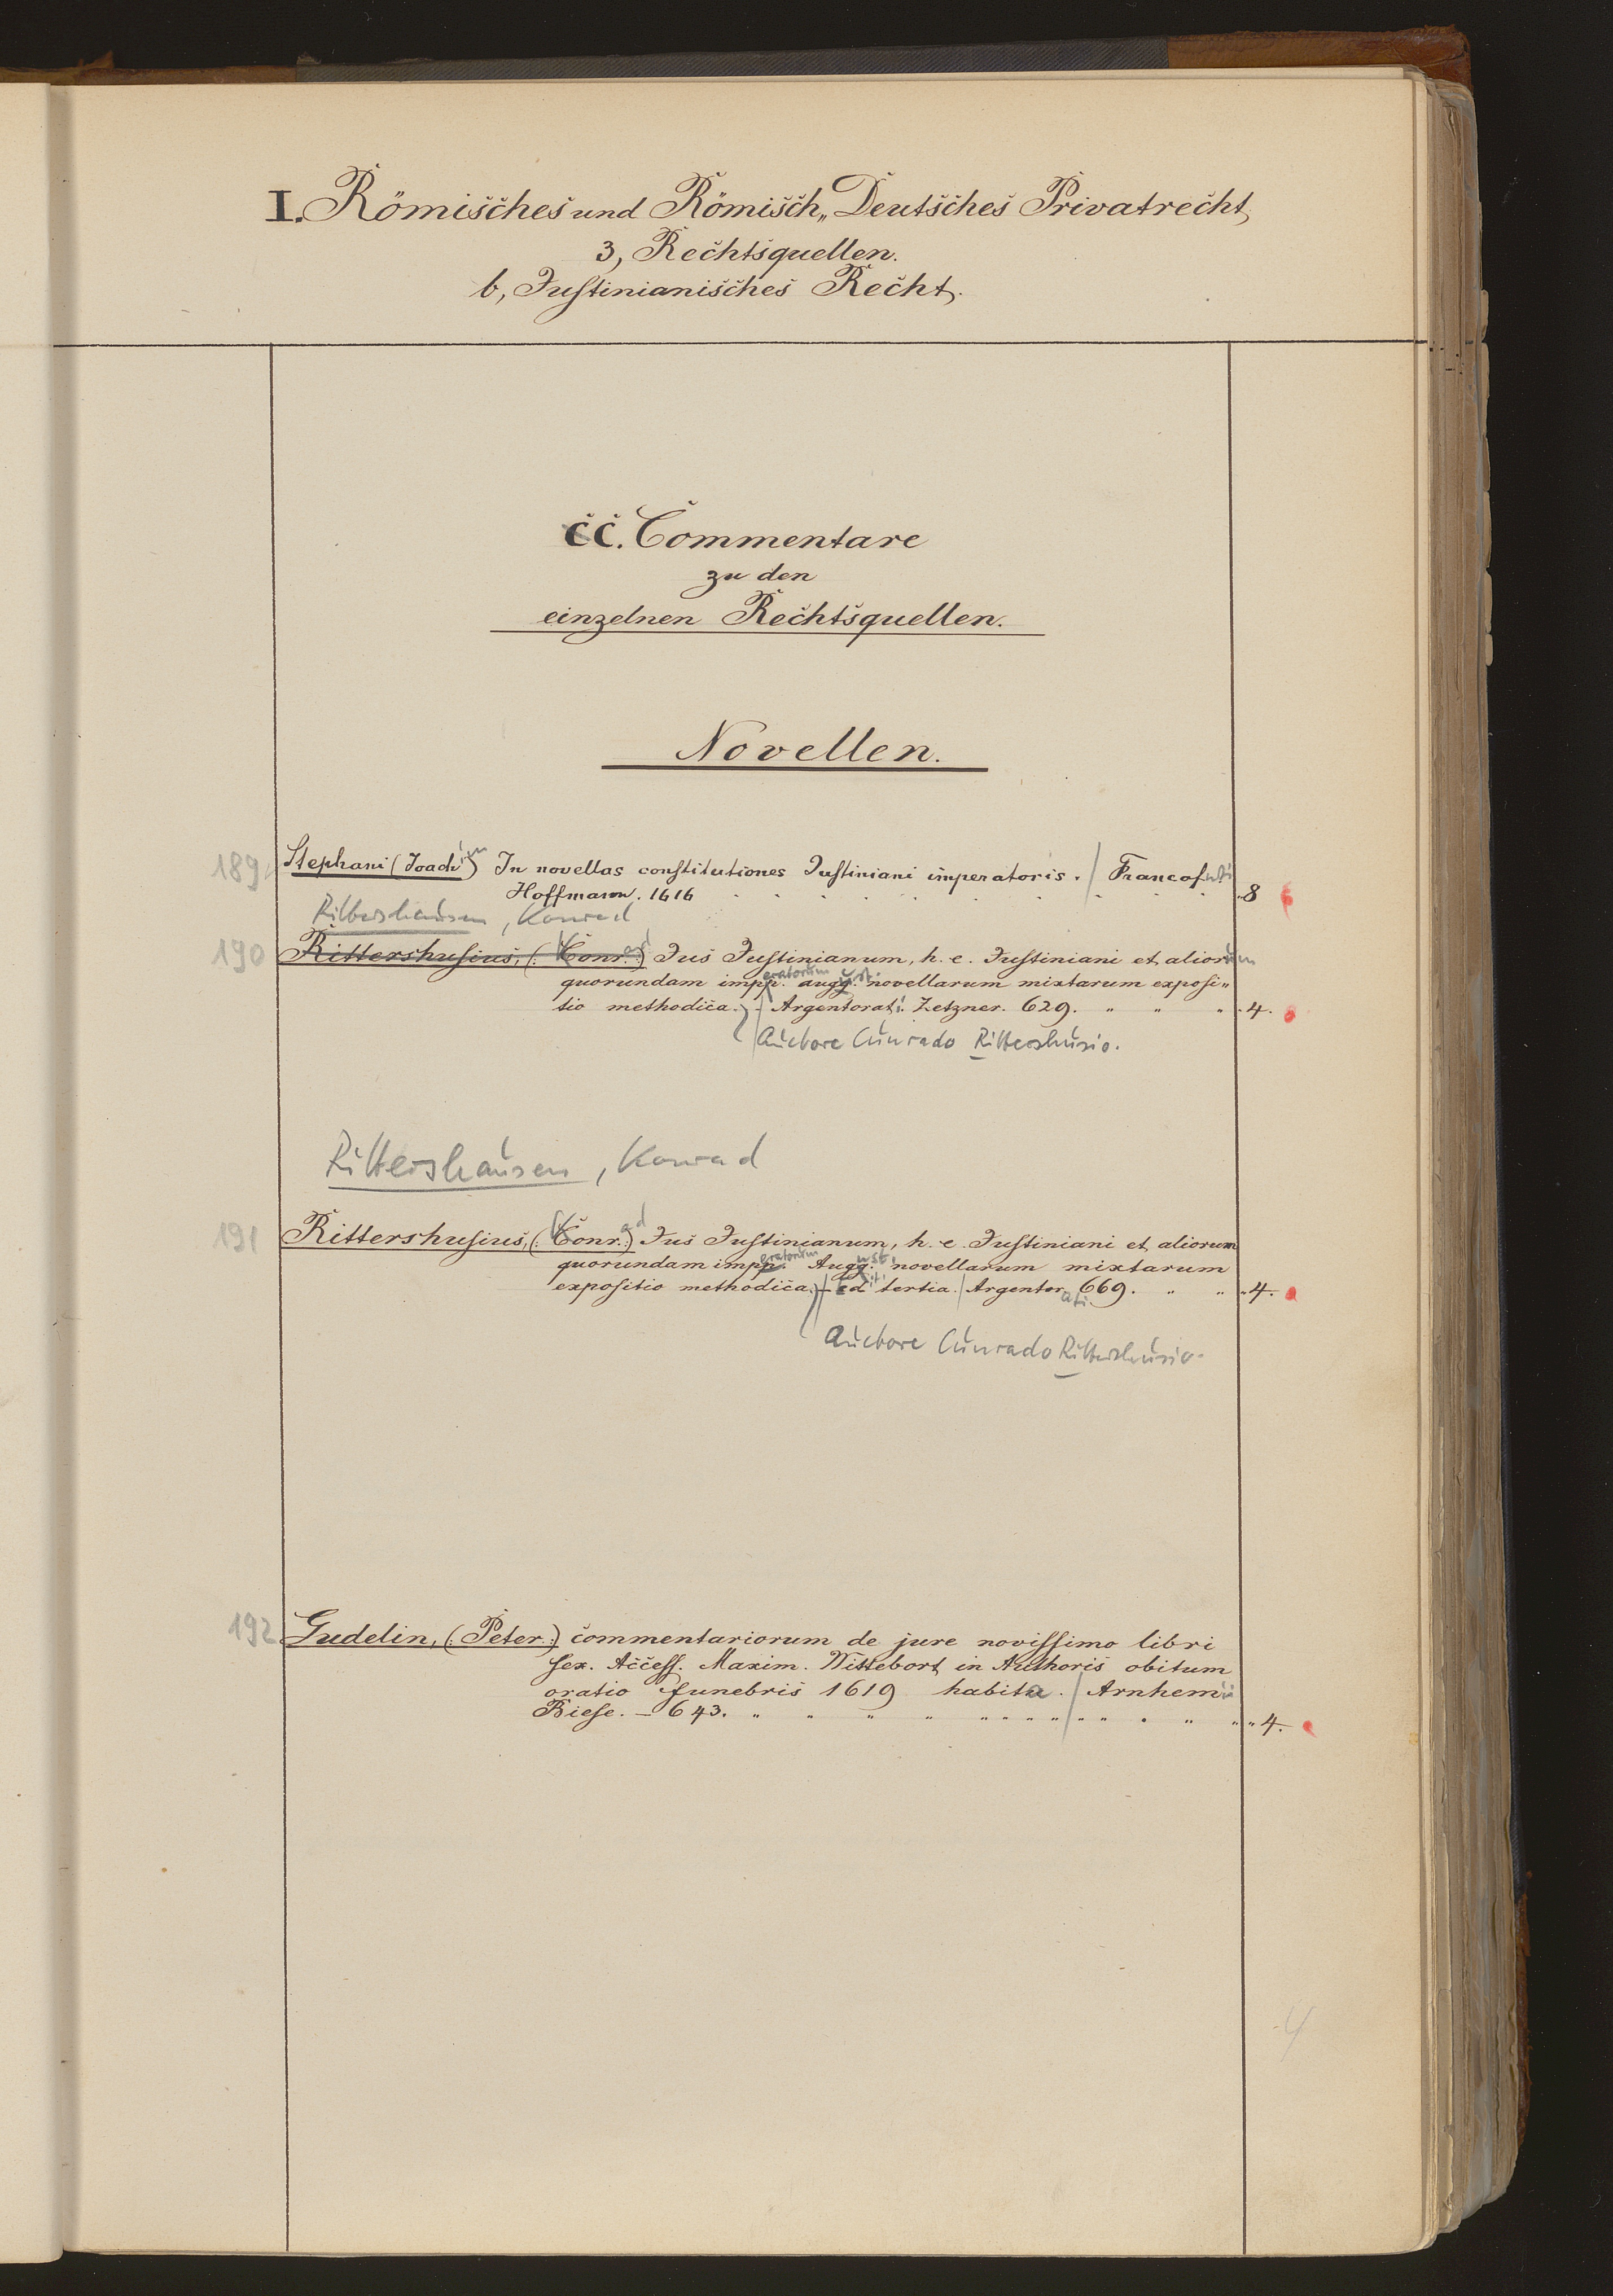 I. Römisches und Römisch„Deutsches Privatrecht,
3, Rechtsquellen.
b, Justinianisches Recht.
cc. Commentare
zu den
einzelnen Rechtsquellen.
Novellen.
189 Stephani (Joachim) In novellas constitutiones Justiniani imperatoris. / Francofurti
Hoffmann. 1616 8
Rittershausen, Konrad
190 Rittershusius, (: Konrad:) Jus Justinianum, h. e. Justiniani et aliorum
quorundam imperatorum august. novellarum mixtarum exposi„
tio methodica. / Argentorati. Zetzner. 629. „ „ „ 4.
Auctore Cunrado Rittershusio.
Rittershausen, Konrad
191 Rittershusius, (: Konrad:) Jus Justinianum, h. e. Justiniani et aliorum
quorundam imperatorum August. novellarum mixtarum
expositio methodica. / Edit. tertia. / Argentorati. 669. „ „ „ 4.
Auctore Cunrado Rittershusio.
192 Gudelin, (: Peter:) commentariorum de jure novissimo libri
sex. Access. Maxim. Wittebort in Authoris obitum
oratio funebris 1619 habita. / Arnhemii
Riese. — 643. „ „ „ „ „ „ „ „ „ „ „ „ „ „ 4.
4